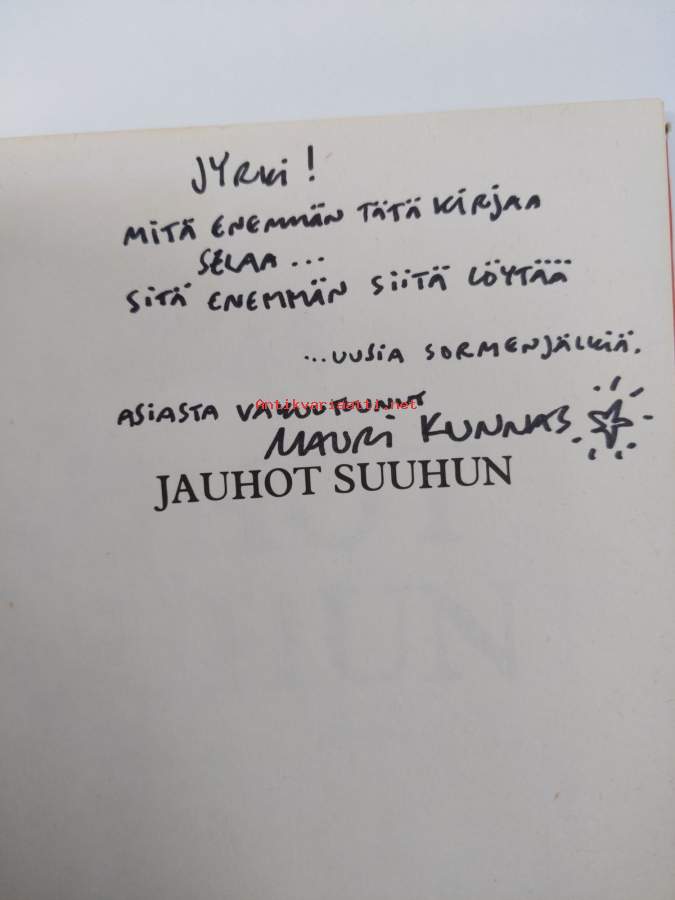 JYRKI!
MITÄ ENEMMÄN TÄTÄ KIRJAA
SELAA...
SITÄ ENEMMÄN SIITÄ LÖYTÄÄ
...UUSIA SORMENJÄLKIÄ.
ASIASTA VAKUUTTUNUT
Antikvariaatti.net
MAURI KUNNAS
JAUHOT SUUHUN